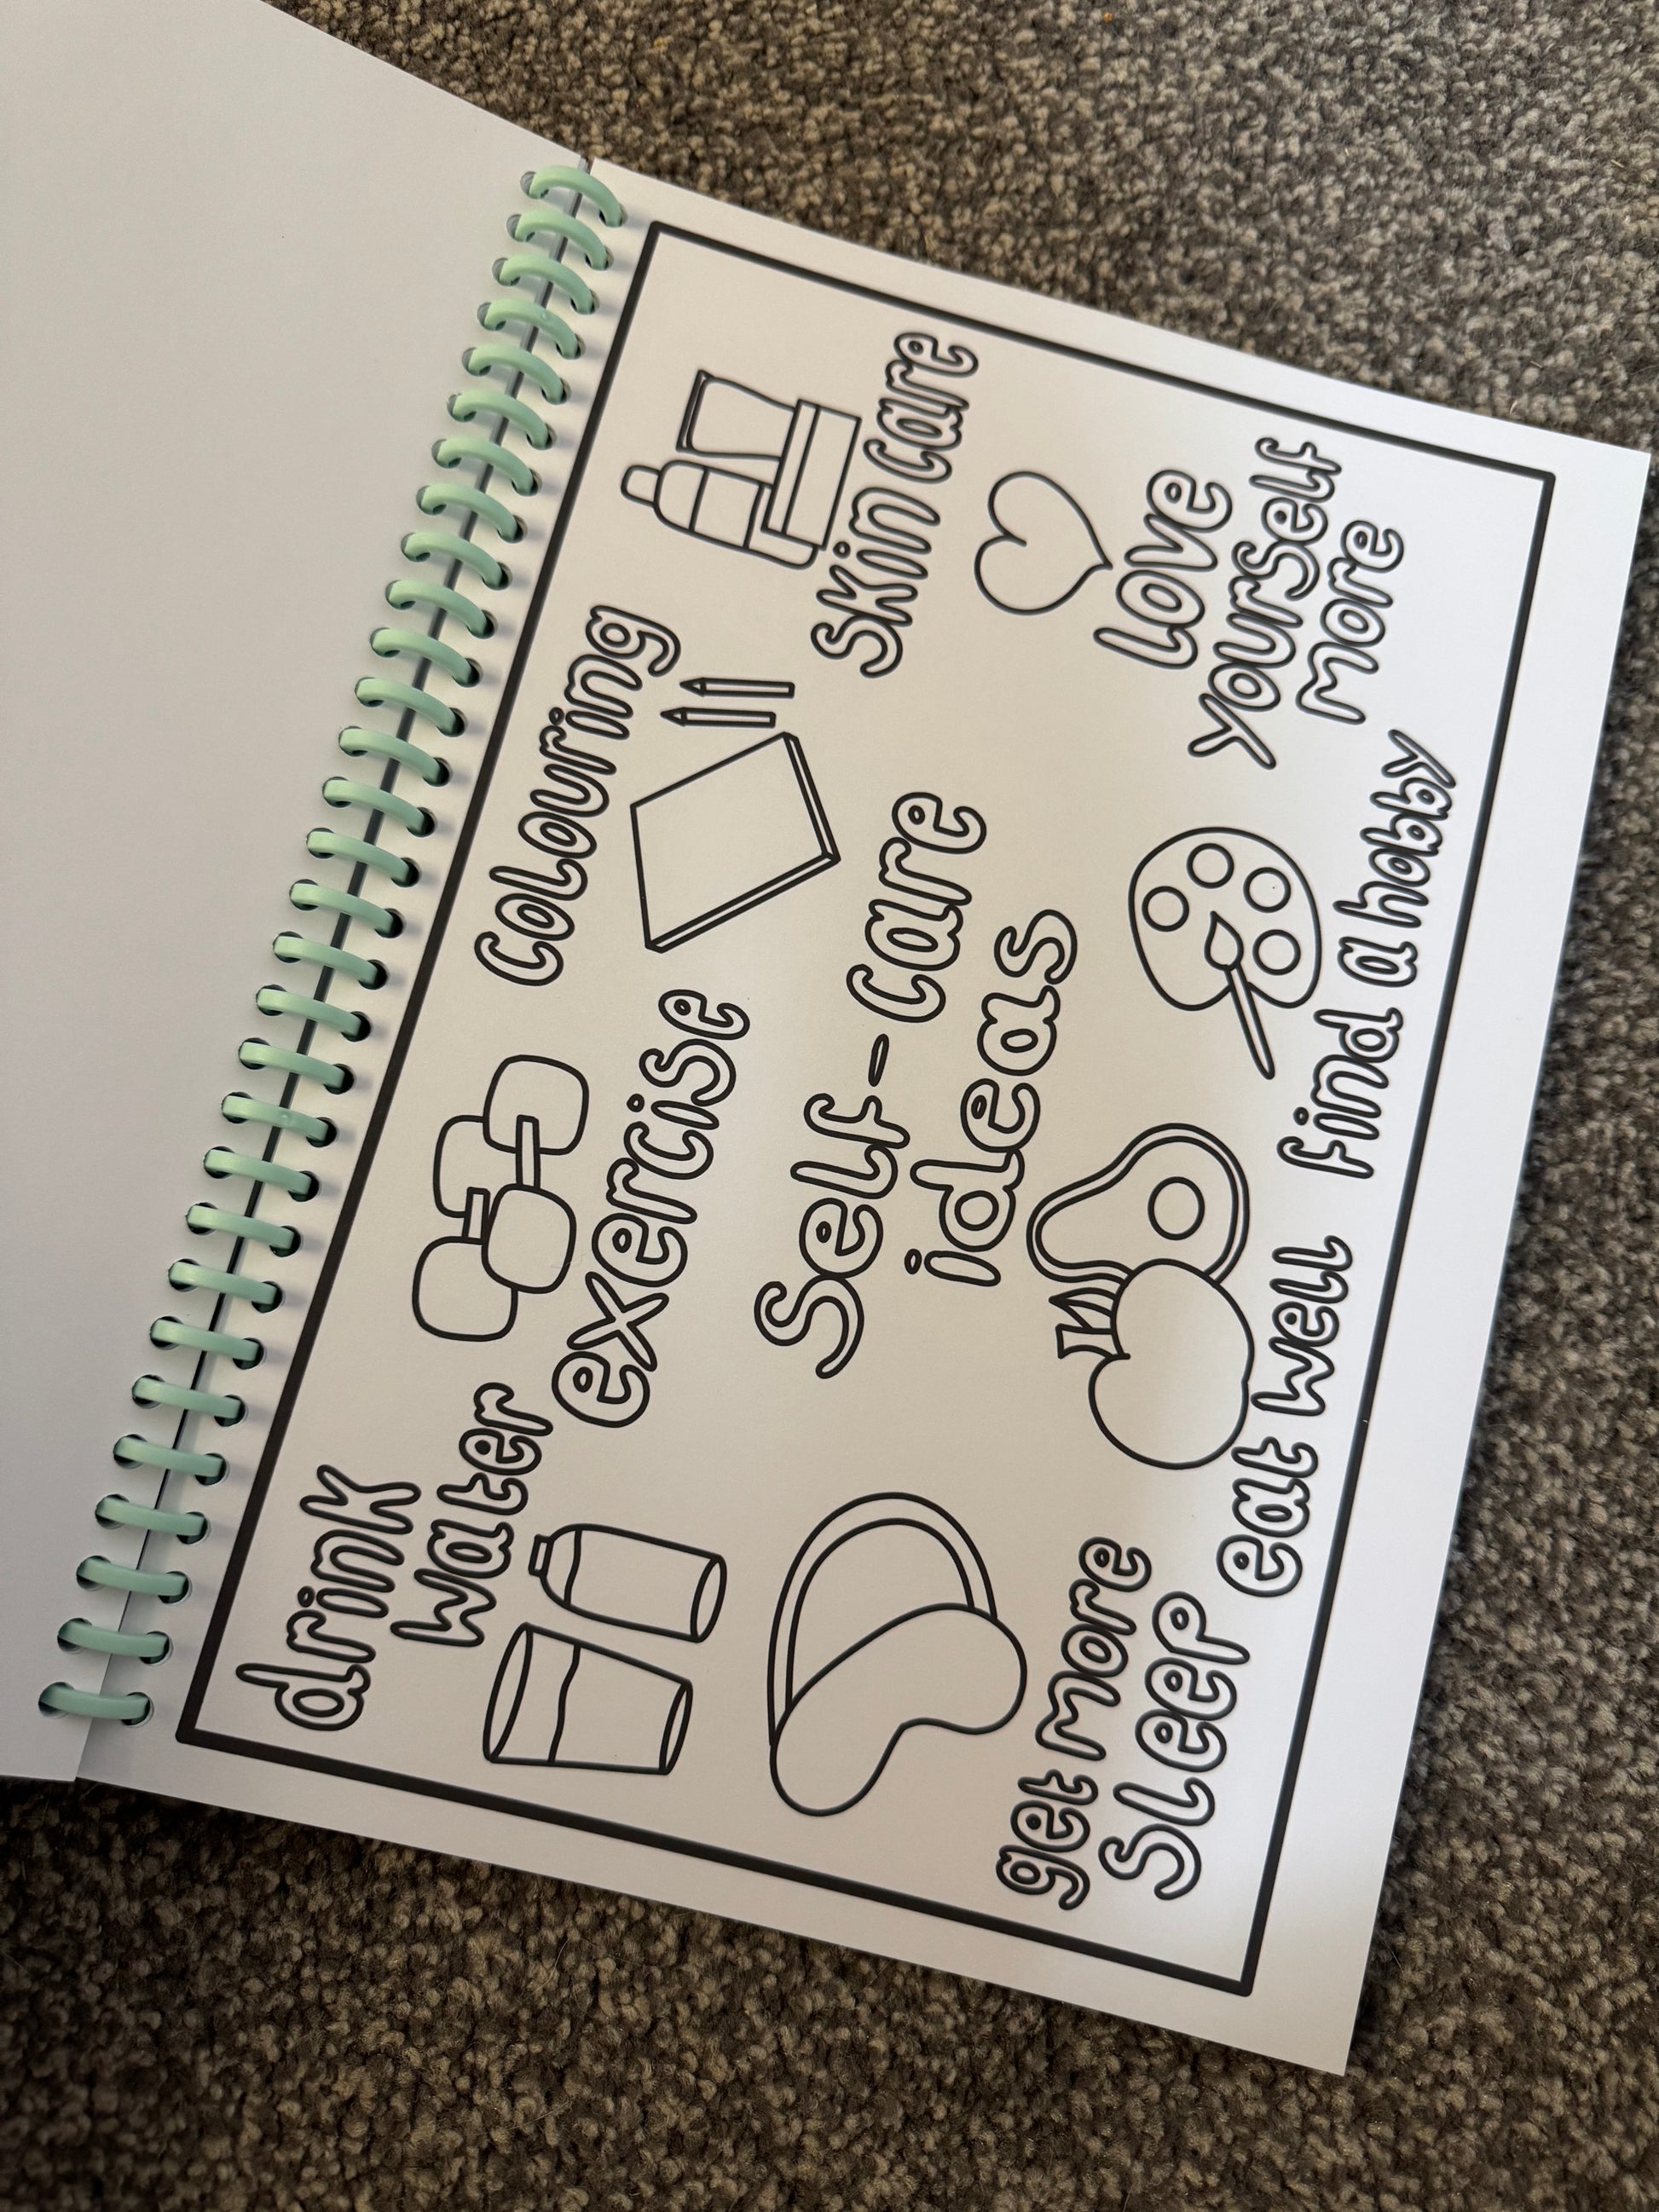 drink
water
exercise
colouring
skin care
self-care
ideas
get more
sleep
eat well
find a hobby
love
yourself
more